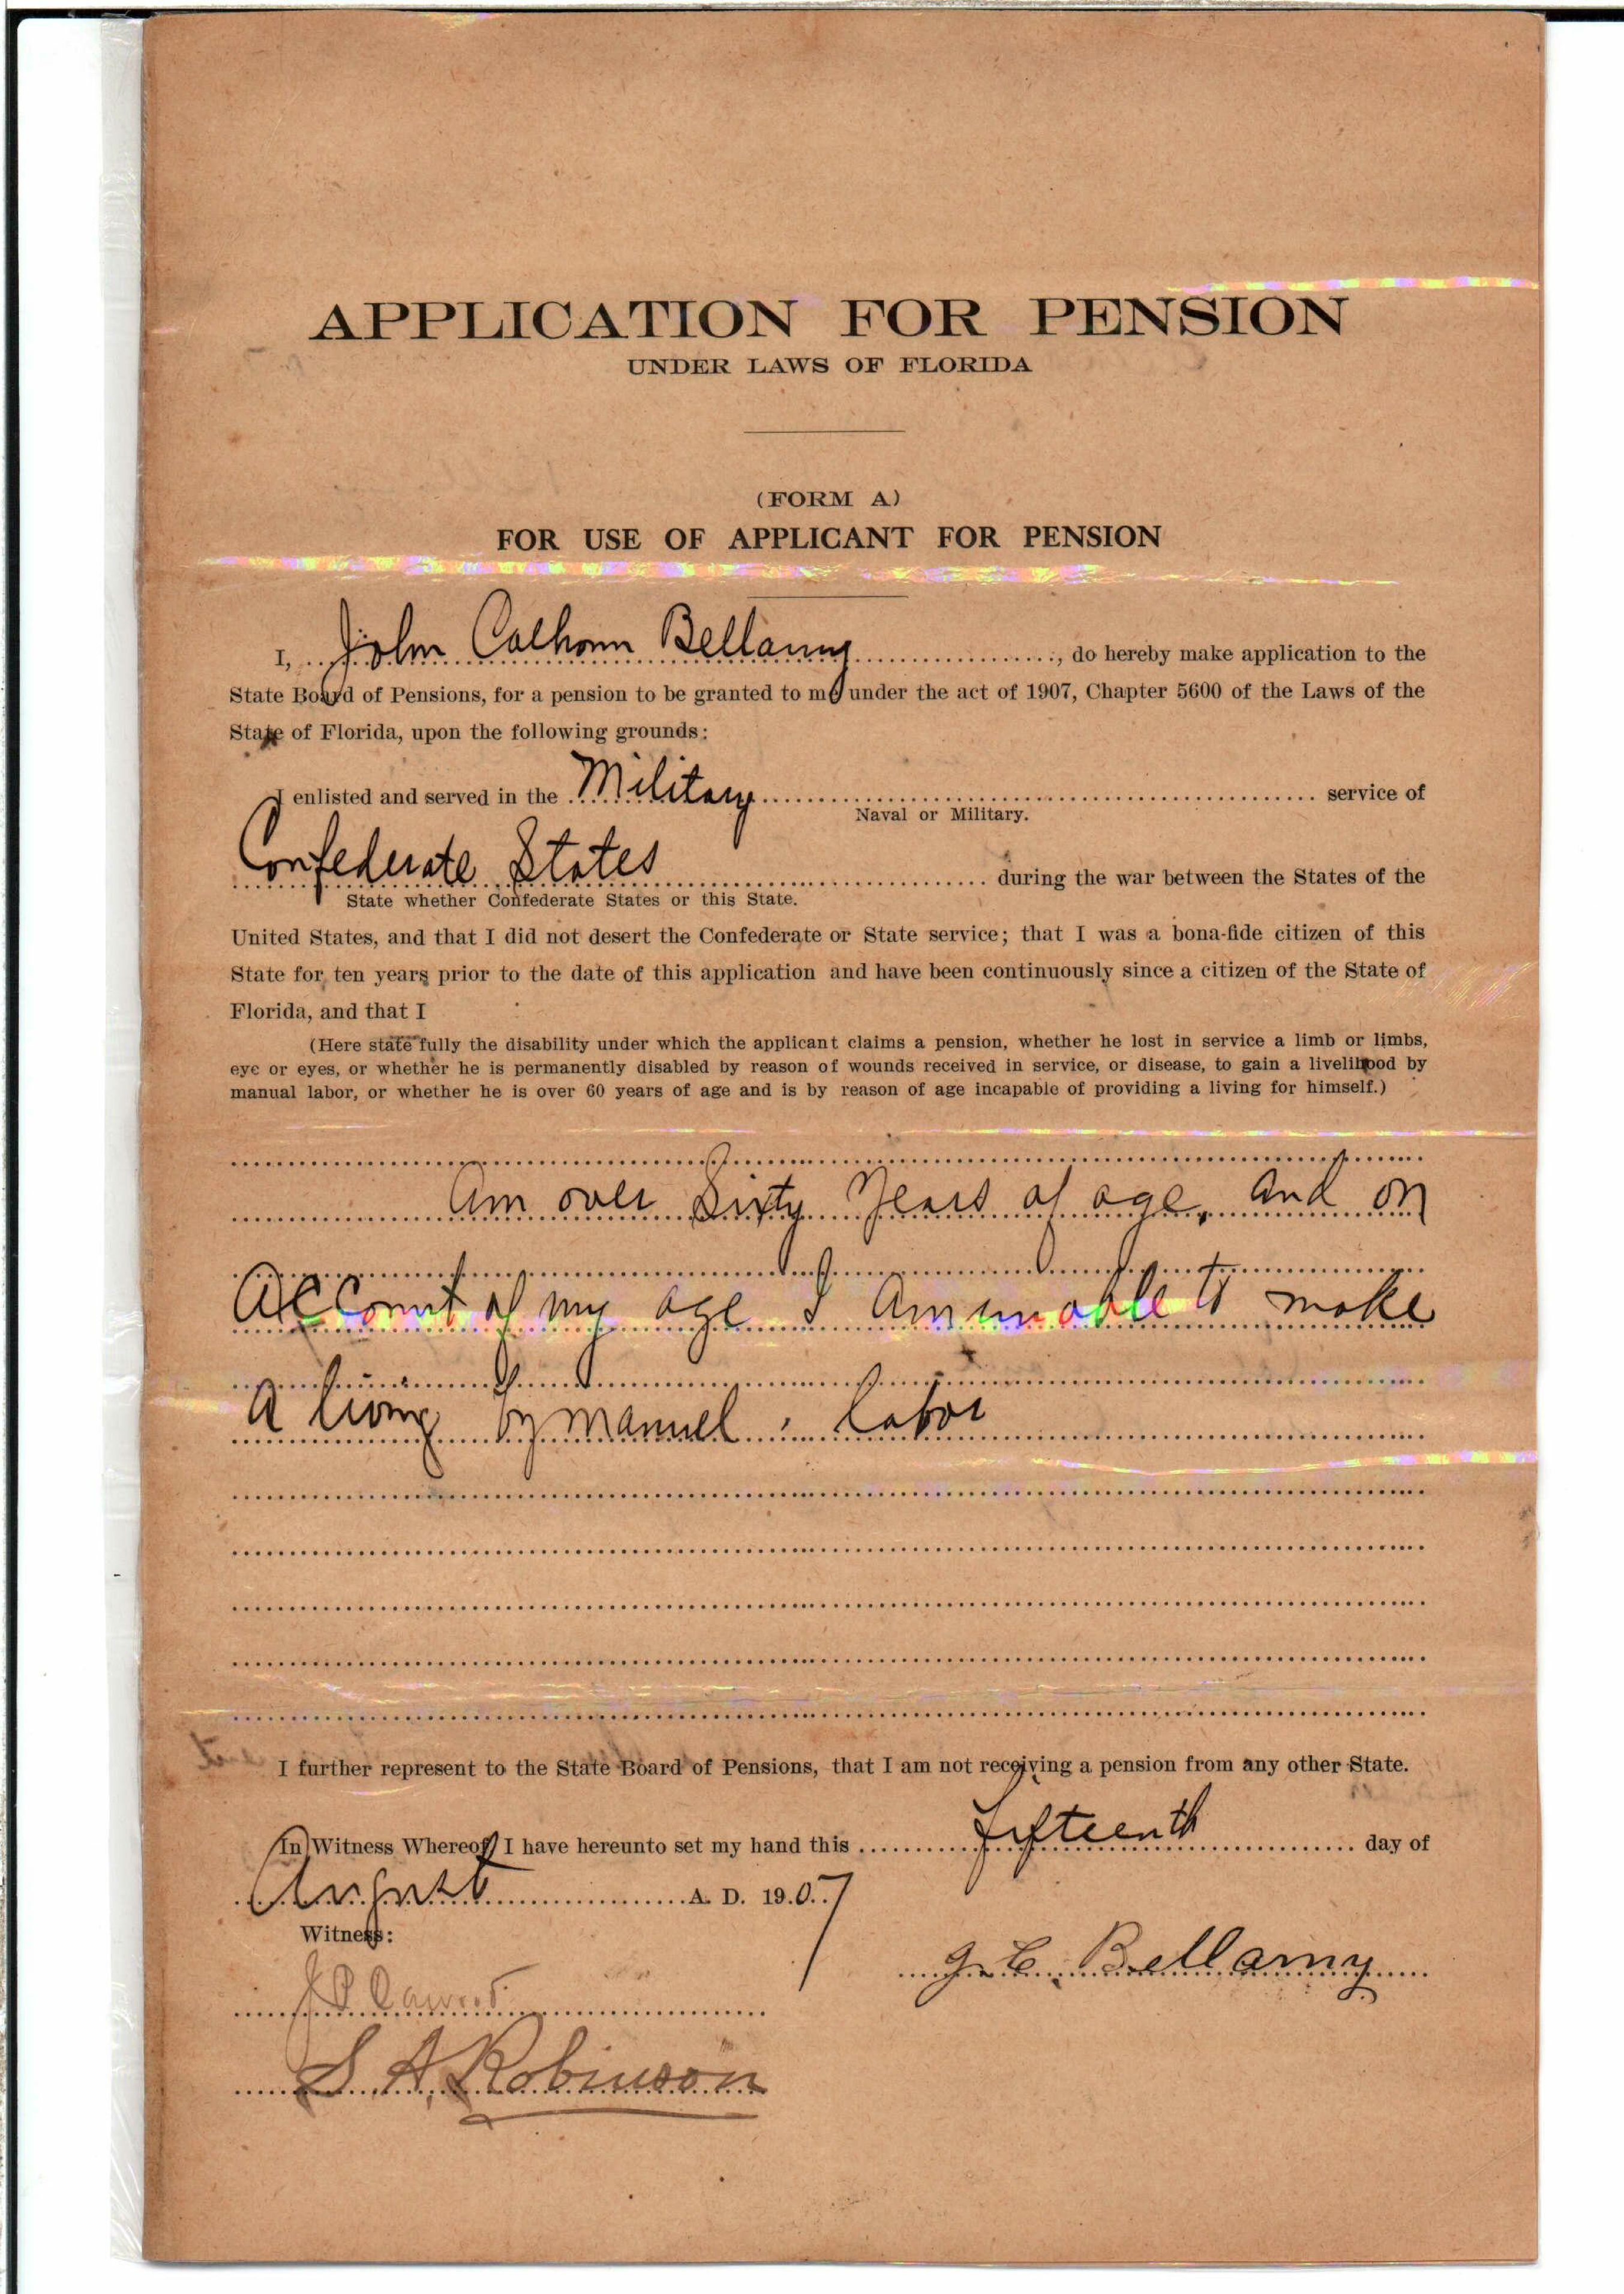 APPLICATION FOR PENSION
UNDER LAWS OF FLORIDA
(FORM A)
FOR USE OF APPLICANT FOR PENSION
I, John Calhoun Bellamy, do hereby make application to the
State Board of Pensions, for a pension to be granted to me under the act of 1907, Chapter 5600 of the Laws of the
State of Florida, upon the following grounds:
I enlisted and served in the Military service of
Naval or Military.
Confederate States during the war between the States of the
State whether Confederate States or this State.
United States, and that I did not desert the Confederate or State service; that I was a bona-fide citizen of this
State for ten years prior to the date of this application and have been continuously since a citizen of the State of
Florida, and that I
(Here state fully the disability under which the applicant claims a pension, whether he lost in service a limb or limbs,
eye or eyes, or whether he is permanently disabled by reason of wounds received in service, or disease, to gain a livelihood by
manual labor, or whether he is over 60 years of age and is by reason of age incapable of providing a living for himself.)
Am over Sixty Years of age, and on
Account of my age I Am unable to make
A living by manuel labor
I further represent to the State Board of Pensions, that I am not receiving a pension from any other State.
In Witness Whereof, I have hereunto set my hand this fifteenth day of
August A. D. 1907
Witness:
J. C. Bellamy
J P
S. A. Robinson